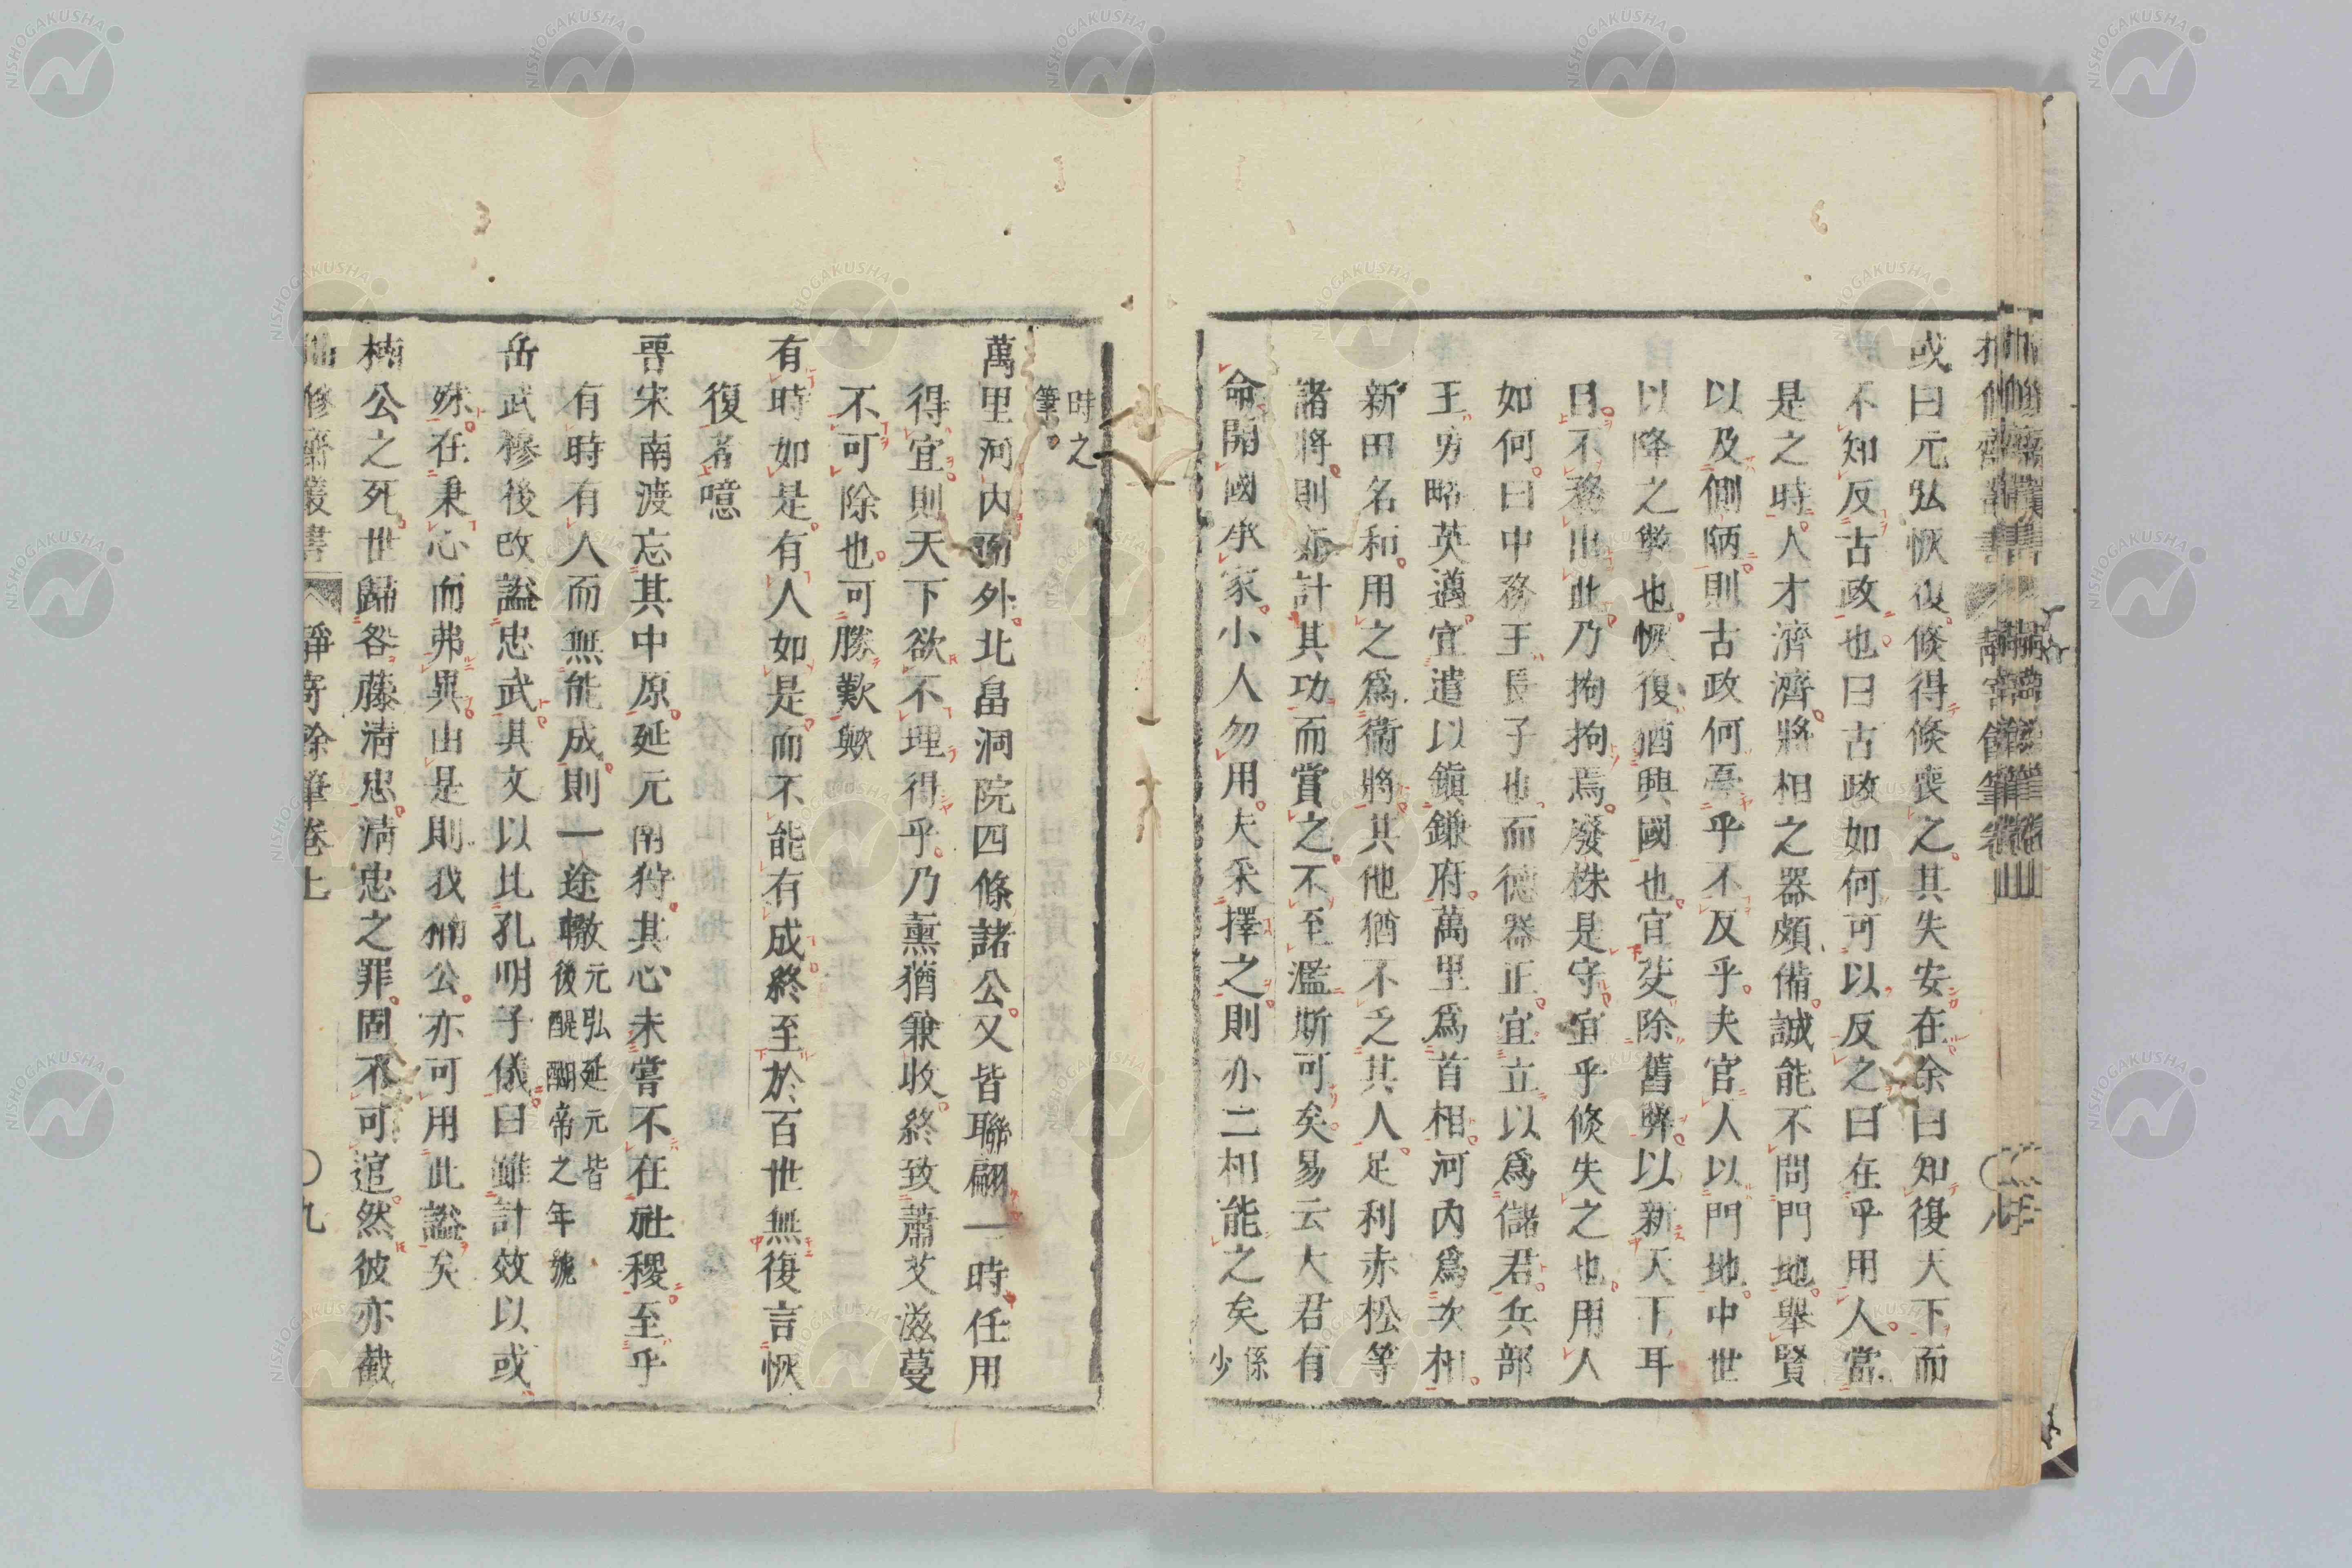 或曰元弘恢復倐得倐喪之其失安在余曰知復天下而
不知反古政也曰古政如何可以反之曰在乎用人當
是之時人才濟濟將相之器頗備誠能不問門地舉賢
以及側陋則古政何憂乎不反乎夫官人以門地中世
以降之弊也恢復酋興國也宜芟除舊弊以新天下耳
目不務出此乃拘拘焉廢株是守宜乎倐失之也用人
如何曰中務王長子也而德器正宜立以爲儲君兵部
王勇略英邁宜遣以鎭鎌府萬里爲首相河内爲次相
新田名和用之爲衞將其他猶不乏其人足利赤松等
諸將則亦計其功而賞之不至濫斯可矣易云大君有
命開國承家小人勿用夫采擇之則亦二相能之矣係少
時之筆
萬里河内而外北畠洞院四條諸公又皆聯翩一時任用
得宜則天下欲不理得乎乃薰猶兼收終致蕭艾滋蔓
不可除也可勝歎歟
有時如是有人如是而不能有成終至於百世無復言恢
復者噫
晋宋南渡忘其中原延元南狩其心未嘗不在社稷至乎
有時有人而無能成則一途轍元弘延元皆後醍醐帝之年號
岳武穆後改謚忠武其文以比孔明子儀曰雖計效以或
殊在秉心而弗異由是則我楠公亦可用此謚矣
楠公之死世歸咎藤淸忠淸忠之罪固不可逭然彼亦截
修齋叢書 靜寄餘筆卷上 〇九